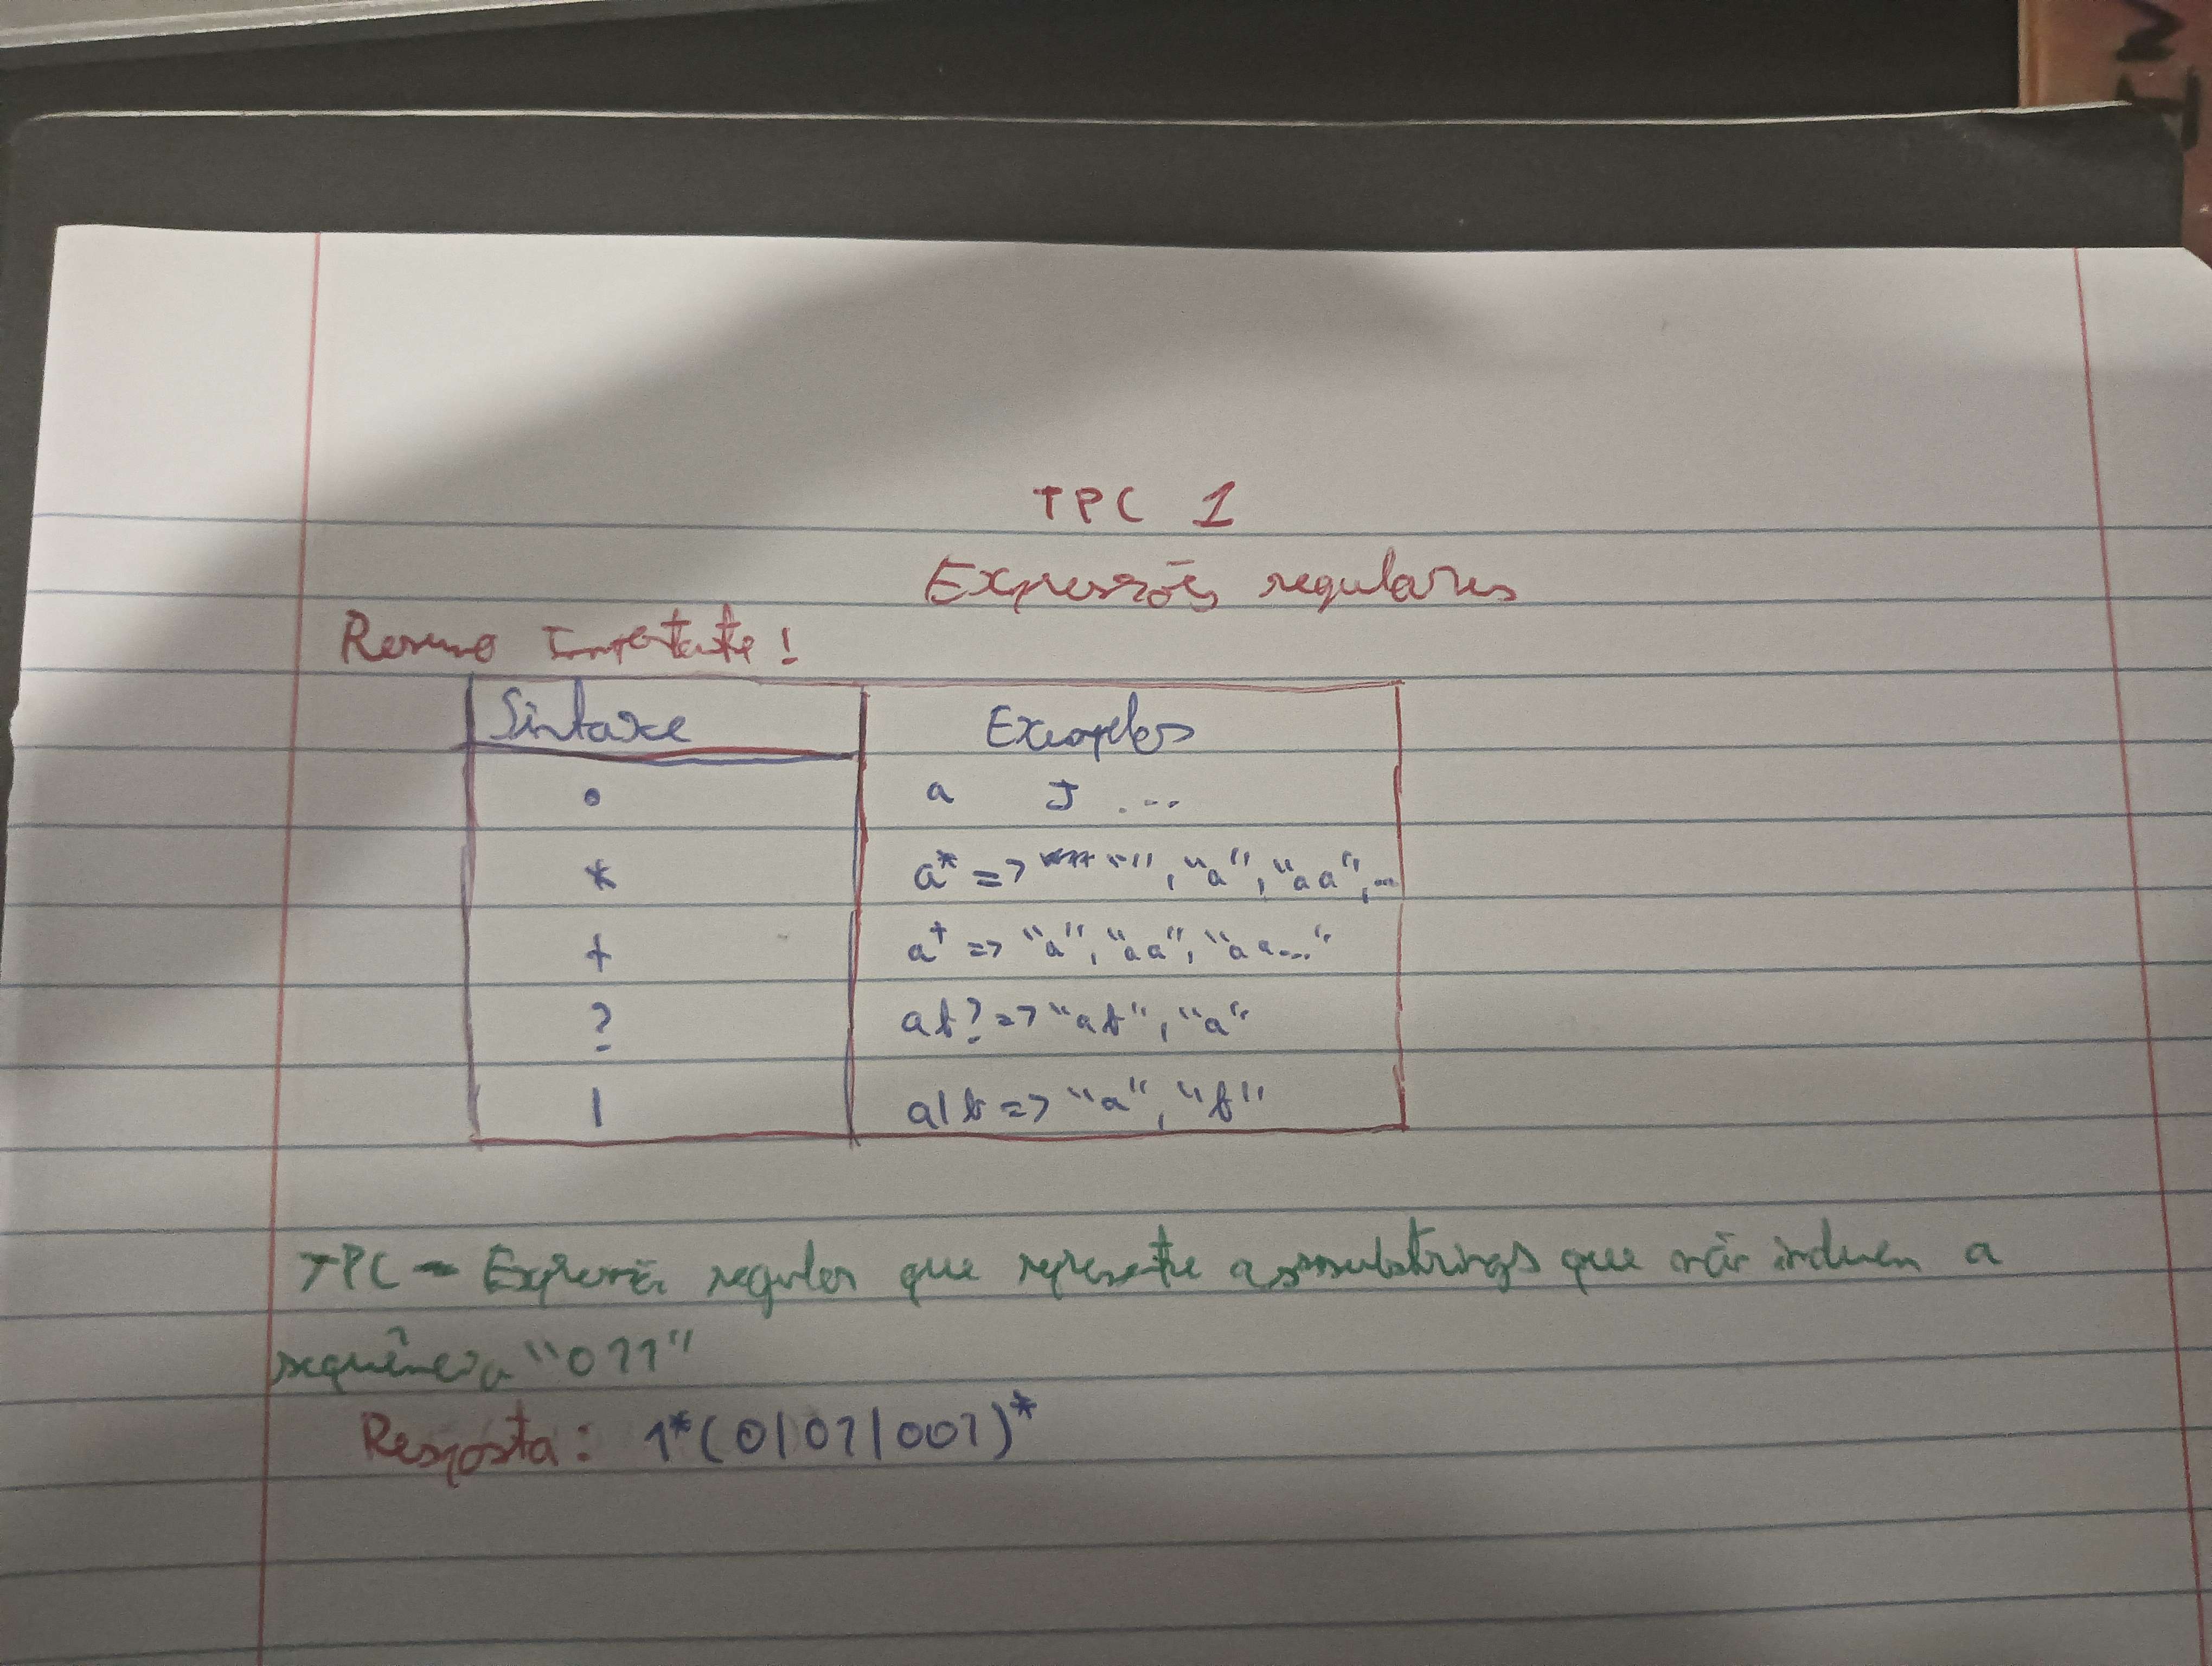 TPC 1
Expressões regulares
Resumo Importante!
Sintaxe Exemplos
. a J ...
* a* => "", "a", "aa", ...
+ a+ => "a", "aa", "aa..."
? ab? => "ab", "a"
| a|b => "a", "b"
TPC - Expressão regular que represente as substrings que não incluem a
sequência "011"
Resposta: 1*(0|01|001)*